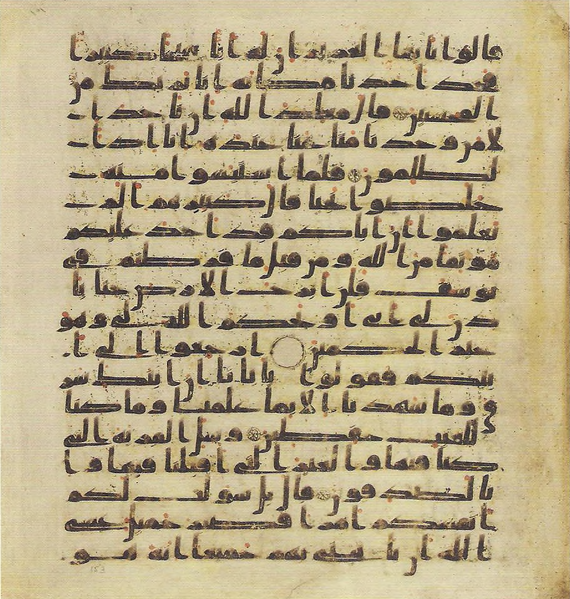 قالوا يا يها العزيز ان له ابا شيخا كبيرا
فخذ احدنا مكانه انا نريك من
المحسنين قال معاذ الله ان ناخذ ا
لا من وجدنا متعنا عنده انا اذا
لظلمون فلما استيسوا منه
خلصوا نجيا قال كبيرهم الم
تعلموا ان اباكم قد اخذ عليكم
موثقا من الله ومن قبل ما فرطتم في
يوسف فلن ابرح الارض حتى يا
ذن لي ابي او يحكم الله لي وهو
خير الحكمين ارجعوا الى ا
بيكم فقولوا يابانا ان ابنك سر
ق وما شهدنا الا بما علمنا وما كنا
للغيب حفظين وسل القرية التي
كنا فيها والعير التي اقبلنا فيها وا
نا لصدقون قال بل سولت لكم
انفسكم امرا فصبر جميل عسى
الله ان ياتيني بهم جميعا انه هو
153